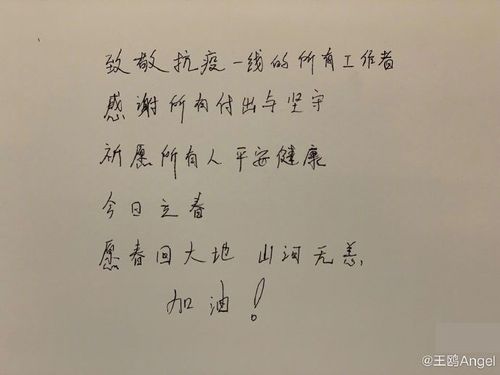 致敬抗疫一线的所有工作者
感谢所有付出与坚守
祈愿所有人平安健康
今日立春
愿春回大地 山河无恙,
加油!
@王鸥Angel